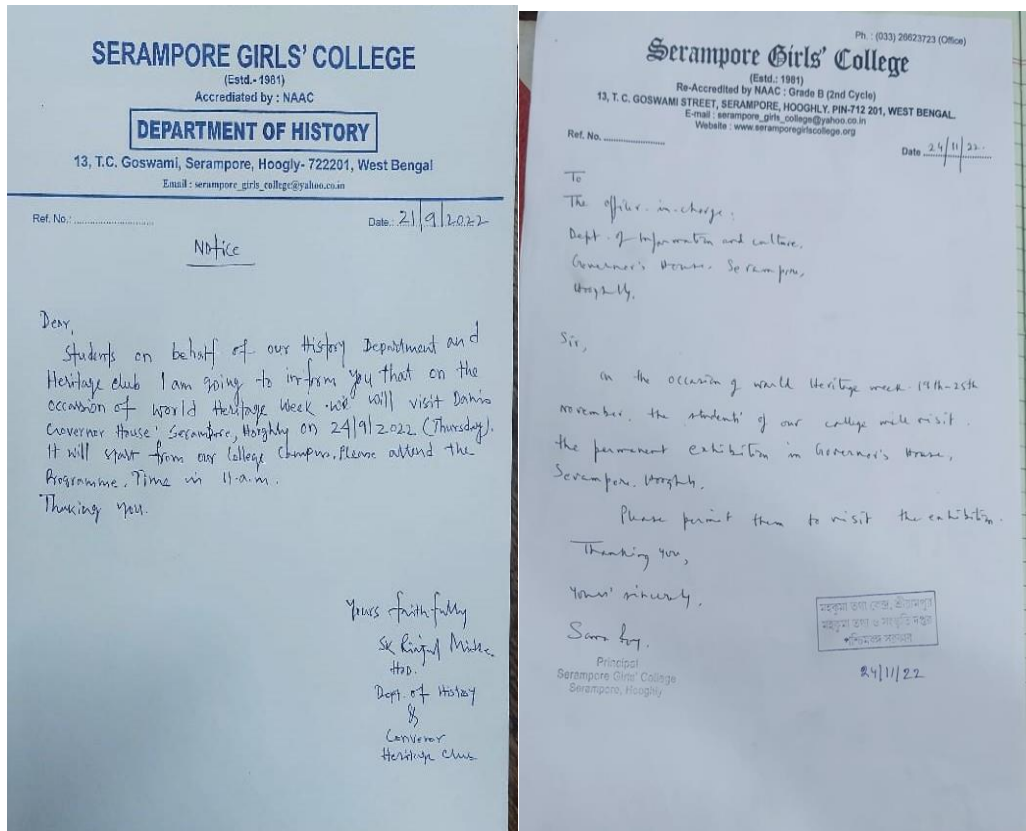 SERAMPORE GIRLS' COLLEGE
(Estd.- 1981)
Accrediated by : NAAC
DEPARTMENT OF HISTORY
13, T.C. Goswami, Serampore, Hoogly- 722201, West Bengal
Email : serampore_girls_college@yahoo.co.in
Ref. No.: ............................
Date.: 21/9/2022
Notice
Dear,
Students on behalf of our History Department and
Heritage club I am going to inform you that on the
occassion of World Heritage Week we will visit Danis
Governor House' Serampore, Hooghly on 24/9/2022 (Thursday).
It will start from our College Campus. Please attend the
Programme. Time in 11-a.m.
Thanking you.
Yours faithfully
SK
HOD.
Dept. of History
&
Convenor
Heritage Club
Ph. : (033) 26623723 (Office)
Serampore Girls' College
(Estd.: 1981)
Re-Accredited by NAAC : Grade B (2nd Cycle)
13, T. C. GOSWAMI STREET, SERAMPORE, HOOGHLY, PIN-712 201, WEST BENGAL.
E-mail : serampore_girls_college@yahoo.co.in
Website : www.seramporegirlscollege.org
Ref. No. ....................
Date 24/11/22.
To
The officer-in-charge.
Dept. of Information and culture.
Governor's House. Serampore,
Hooghly.
Sir,
on the occasion of world Heritage week 19th-25th
November. the students' of our college will visit
the permanent exhibition in Governor's House,
Serampore. Hooghly.
Please permit them to visit the exhibition.
Thanking you,
Yours' sincerely.
Principal
Serampore Girls' College
Serampore, Hooghly
মহকুমা তথ্য কেন্দ্র, শ্রীরামপুর
মহকুমা তথ্য ও সংস্কৃতি দপ্তর
পশ্চিমবঙ্গ সরকার
24/11/22